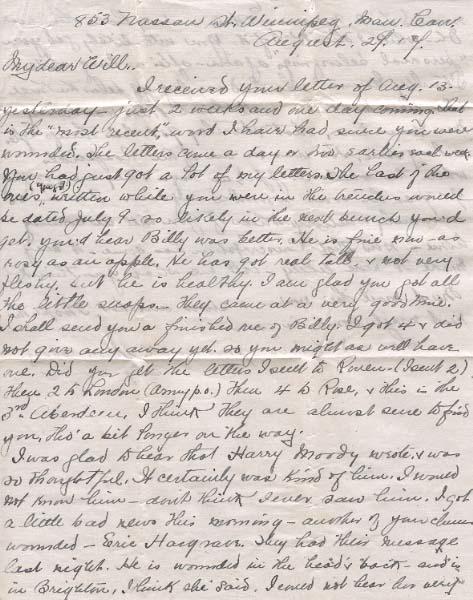 853 Nassau St. Winnipeg, Man. Can.
August. 29.
My dear Will.
I received your letter of Aug. 13
yesterday - just 2 weeks and one day coming. That
is the "most recent" word I have had, since you were
wounded. The letters came a day or two earlier last week.
You had just got a lot of my letters. The last of the
ones, (you'd) written while you were in the trenches would
be dated July 9 - so likely in the next bunch you'd
get, you'd hear Billy was better. He is fine now - as
rosy as an apple. He has got real tall & not very
fleshy, but he is healthy. I am glad you got all
the little snaps - they came at a very good time.
I shall send you a finished one of Billy. I got 4 & did
not give any away yet. so you might as well have
one. Did you get the letters I sent to Rouen - (I sent 2)
Then 2 to London (Army p.o.) Then 4 to Rose, & this is the
3rd Aberdeen, I think they are almost sure to find
you, tho' a bit longer on the way.
I was glad to hear that Harry Moody wrote, & was
so thoughtful. It certainly was kind of him. I would
not know him - don't think I ever saw him. I got
a little bad news this morning - another of your chums
wounded - Eric Hargrave. They had their message
last night. He is wounded in the head & back - and is
in Brighton, I think she said. I could not hear her very